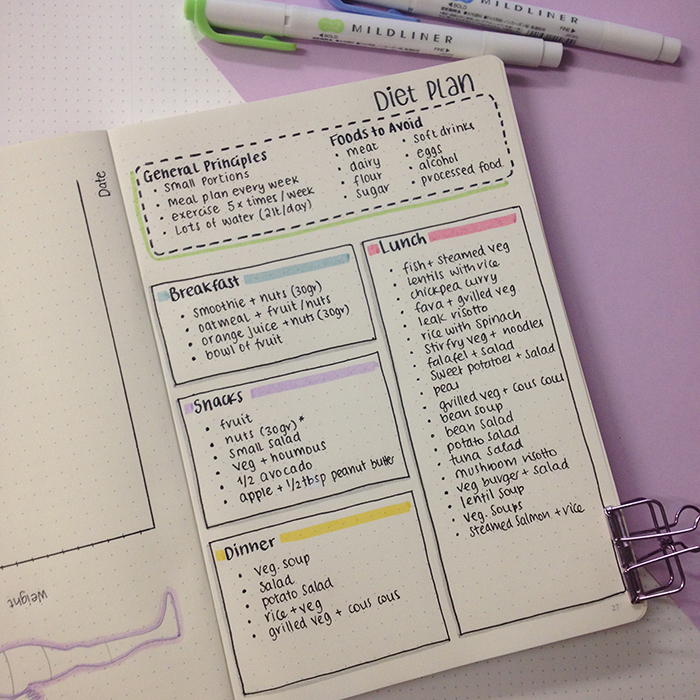 BOLD MILDLINER FINE
BOLD MILDLINER FINE
Date
Weight
Diet Plan
General Principles
• small portions
• meal plan every week
• exercise 5x times/week
• Lots of water (2lt/day)
Foods to Avoid
• meat
• dairy
• flour
• sugar
• soft drinks
• eggs
• alcohol
• processed food
Breakfast
• smoothie + nuts (30gr)
• oatmeal + fruit/nuts
• orange juice + nuts (30gr)
• bowl of fruit
Snacks
• fruit
• nuts (30gr)*
• small salad
• veg + houmous
• 1/2 avocado
• apple + 1/2tbsp peanut butter
Dinner
• veg. soup
• salad
• potato salad
• rice + veg
• grilled veg + cous cous
Lunch
• fish + steamed veg
• lentils with rice
• chickpea curry
• fava + grilled veg
• leak risotto
• rice with spinach
• stir fry veg + noodles
• falafel + salad
• sweet potatoes + salad
• peas
• grilled veg + cous cous
• bean soup
• bean salad
• potato salad
• tuna salad
• mushroom risotto
• veg burger + salad
• lentil soup
• veg. soups
• steamed salmon + rice
27